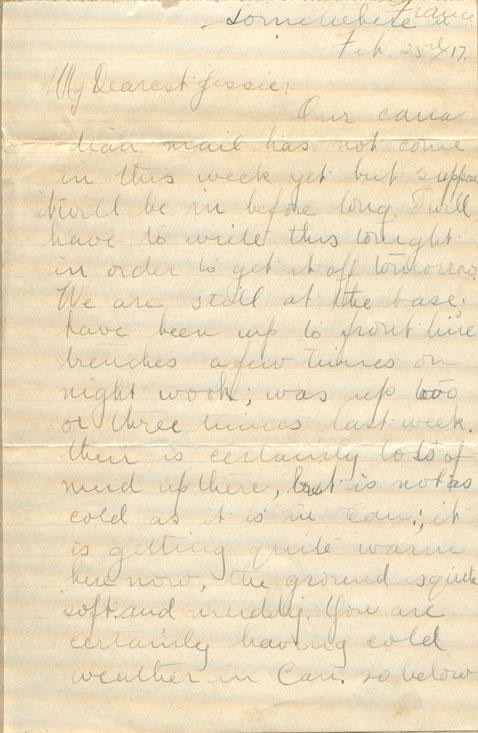 Somewhere in France
Feb. 25th/17.
My Dearest Jessie:
Our cana
dian mail has not come
in this week yet but suppose
it will be in before long. I will
have to write this tonight
in order to get it off tomorrow.
We are still at the base.
have been up to front line
trenches a few times on
night work; was up two
or three times last week.
their is certainly lots of
mud up there, but is not as
cold as it is in Can.; it
is getting quite warm
here now, the ground is quite
soft and muddy. You are
certainly having cold
weather in Can. 20 below